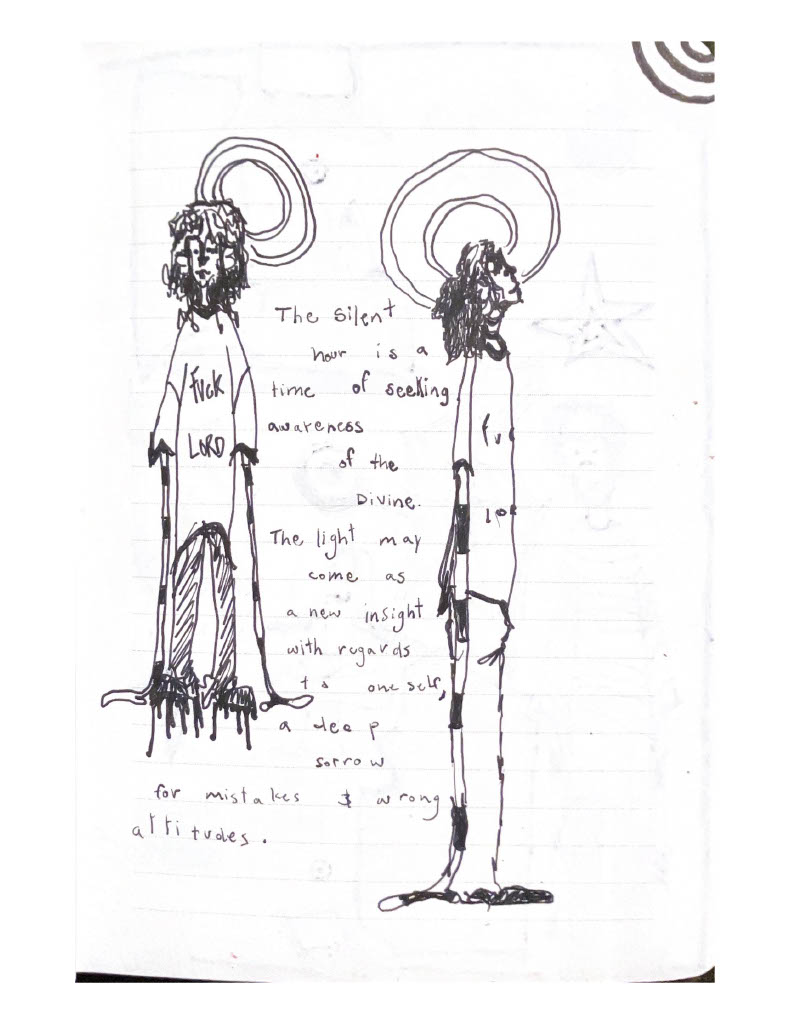 The Silent
hour is a
time of seeking
awareness
of the
Divine.
The light may
come as
a new insight
with regards
to oneself,
a deep
sorrow
for mistakes & wrong
attitudes.
FUCK
LORD
FUC
LOR